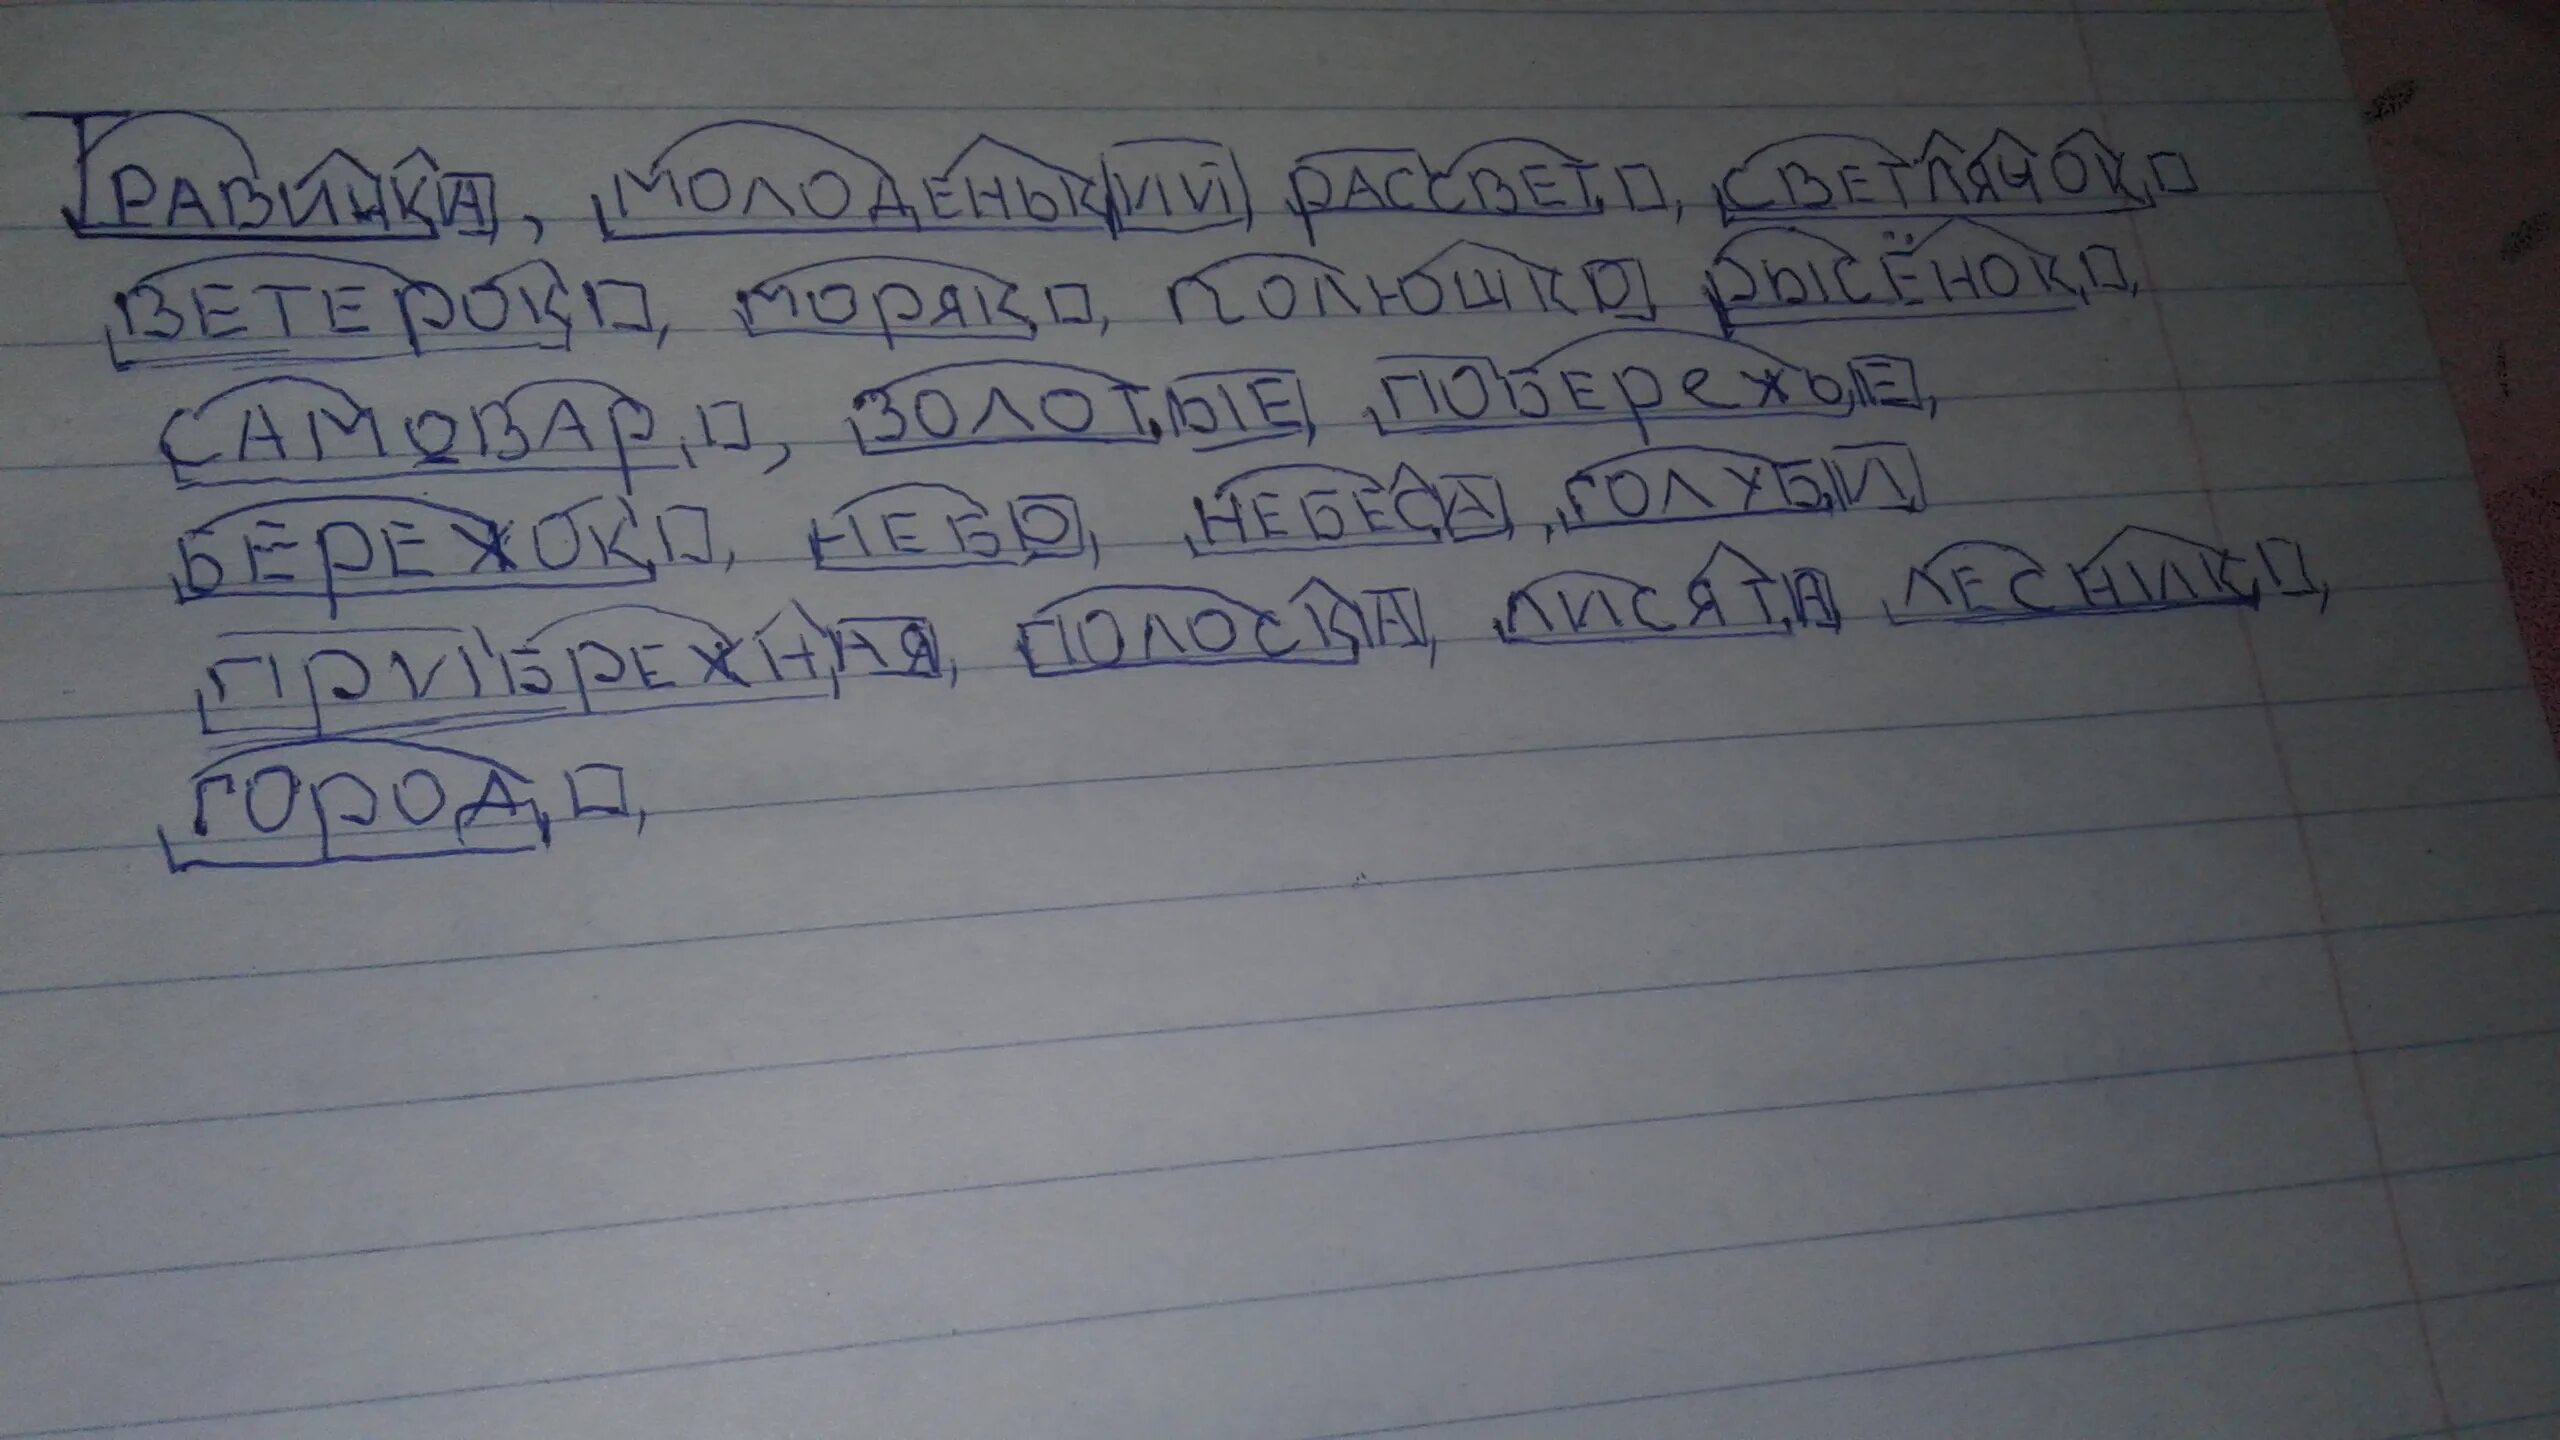 ТРАВИНКА, МОЛОДЕНЬКИЙ РАССВЕТ, СВЕТЛЯЧОК
ВЕТЕРОК, МОРЯК, ПОЛЮШКО РЫСЁНОК,
САМОВАР, ЗОЛОТЫЕ, ПОБЕРЕЖЬЕ,
БЕРЕЖОК, НЕБО, НЕБЕСА, ГОЛУБИ
ПРИБРЕЖНАЯ, ПОЛОСКА, ЛИСЯТА ЛЕСНИК,
ГОРОД,